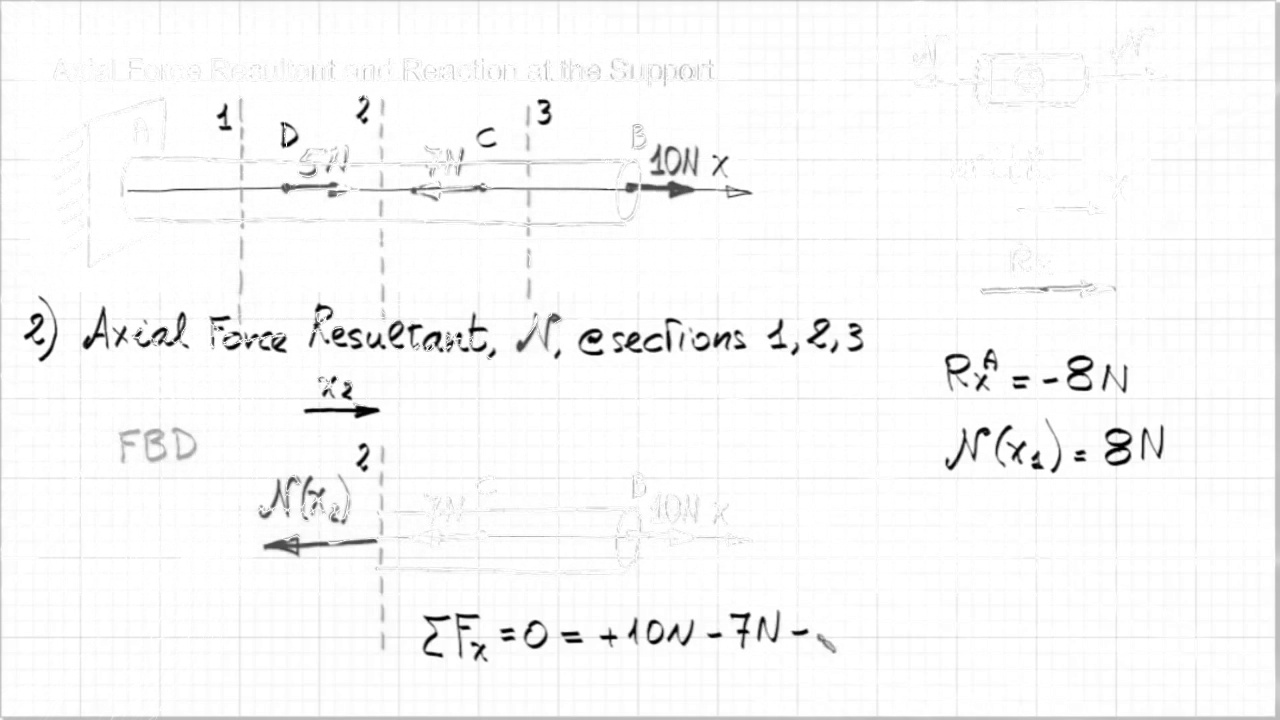 Axial Force Resultant and Reaction at the Support
1 2 3
A D 5N 7N C B 10N x
2) Axial Force Resultant, N, @sections 1, 2, 3
x₂
FBD
2
N(x₂) 7N C B 10N x
ΣFₓ = 0 = +10N - 7N -
N N
x
Rₓ
Rₓᴬ = -8N
N(x₁) = 8N